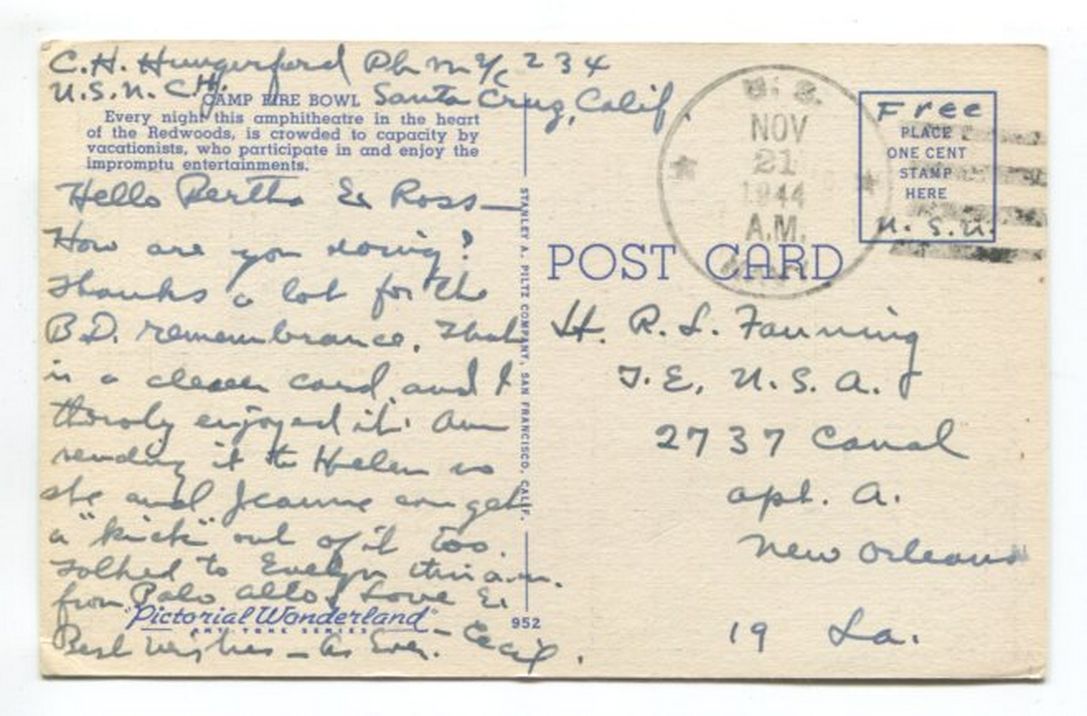 C.H. Hungerford Ph M 2/c 234
U.S.N.C.H. Santa Cruz, Calif.
CAMP FIRE BOWL
Every night this amphitheatre in the heart
of the Redwoods, is crowded to capacity by
vacationists, who participate in and enjoy the
impromptu entertainments.
Hello Bertha & Ross—
How are you doing?
Thanks a lot for the
B.D. remembrance. That
is a clever card and I
thoroly enjoyed it. Am
sending it to Helen so
she and Jeanne can get
a "kick" out of it too.
Talked to Evelyn this a.m.
from Palo Alto. Love &
Best Wishes — As Ever. — Cecil.
"Pictorial Wonderland"
ART TONE SERIES
952
STANLEY A. PILTZ COMPANY, SAN FRANCISCO, CALIF.
POST CARD
U. S.
NOV
21
1944
A.M.
NAVY
Free
PLACE
ONE CENT
STAMP
HERE
U.S.N.
H. R. L. Fanning
T.E., U.S.A.
2737 Canal
apt. A.
New Orleans
19 La.